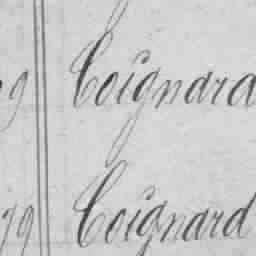 9 Coignard
79 Coignard